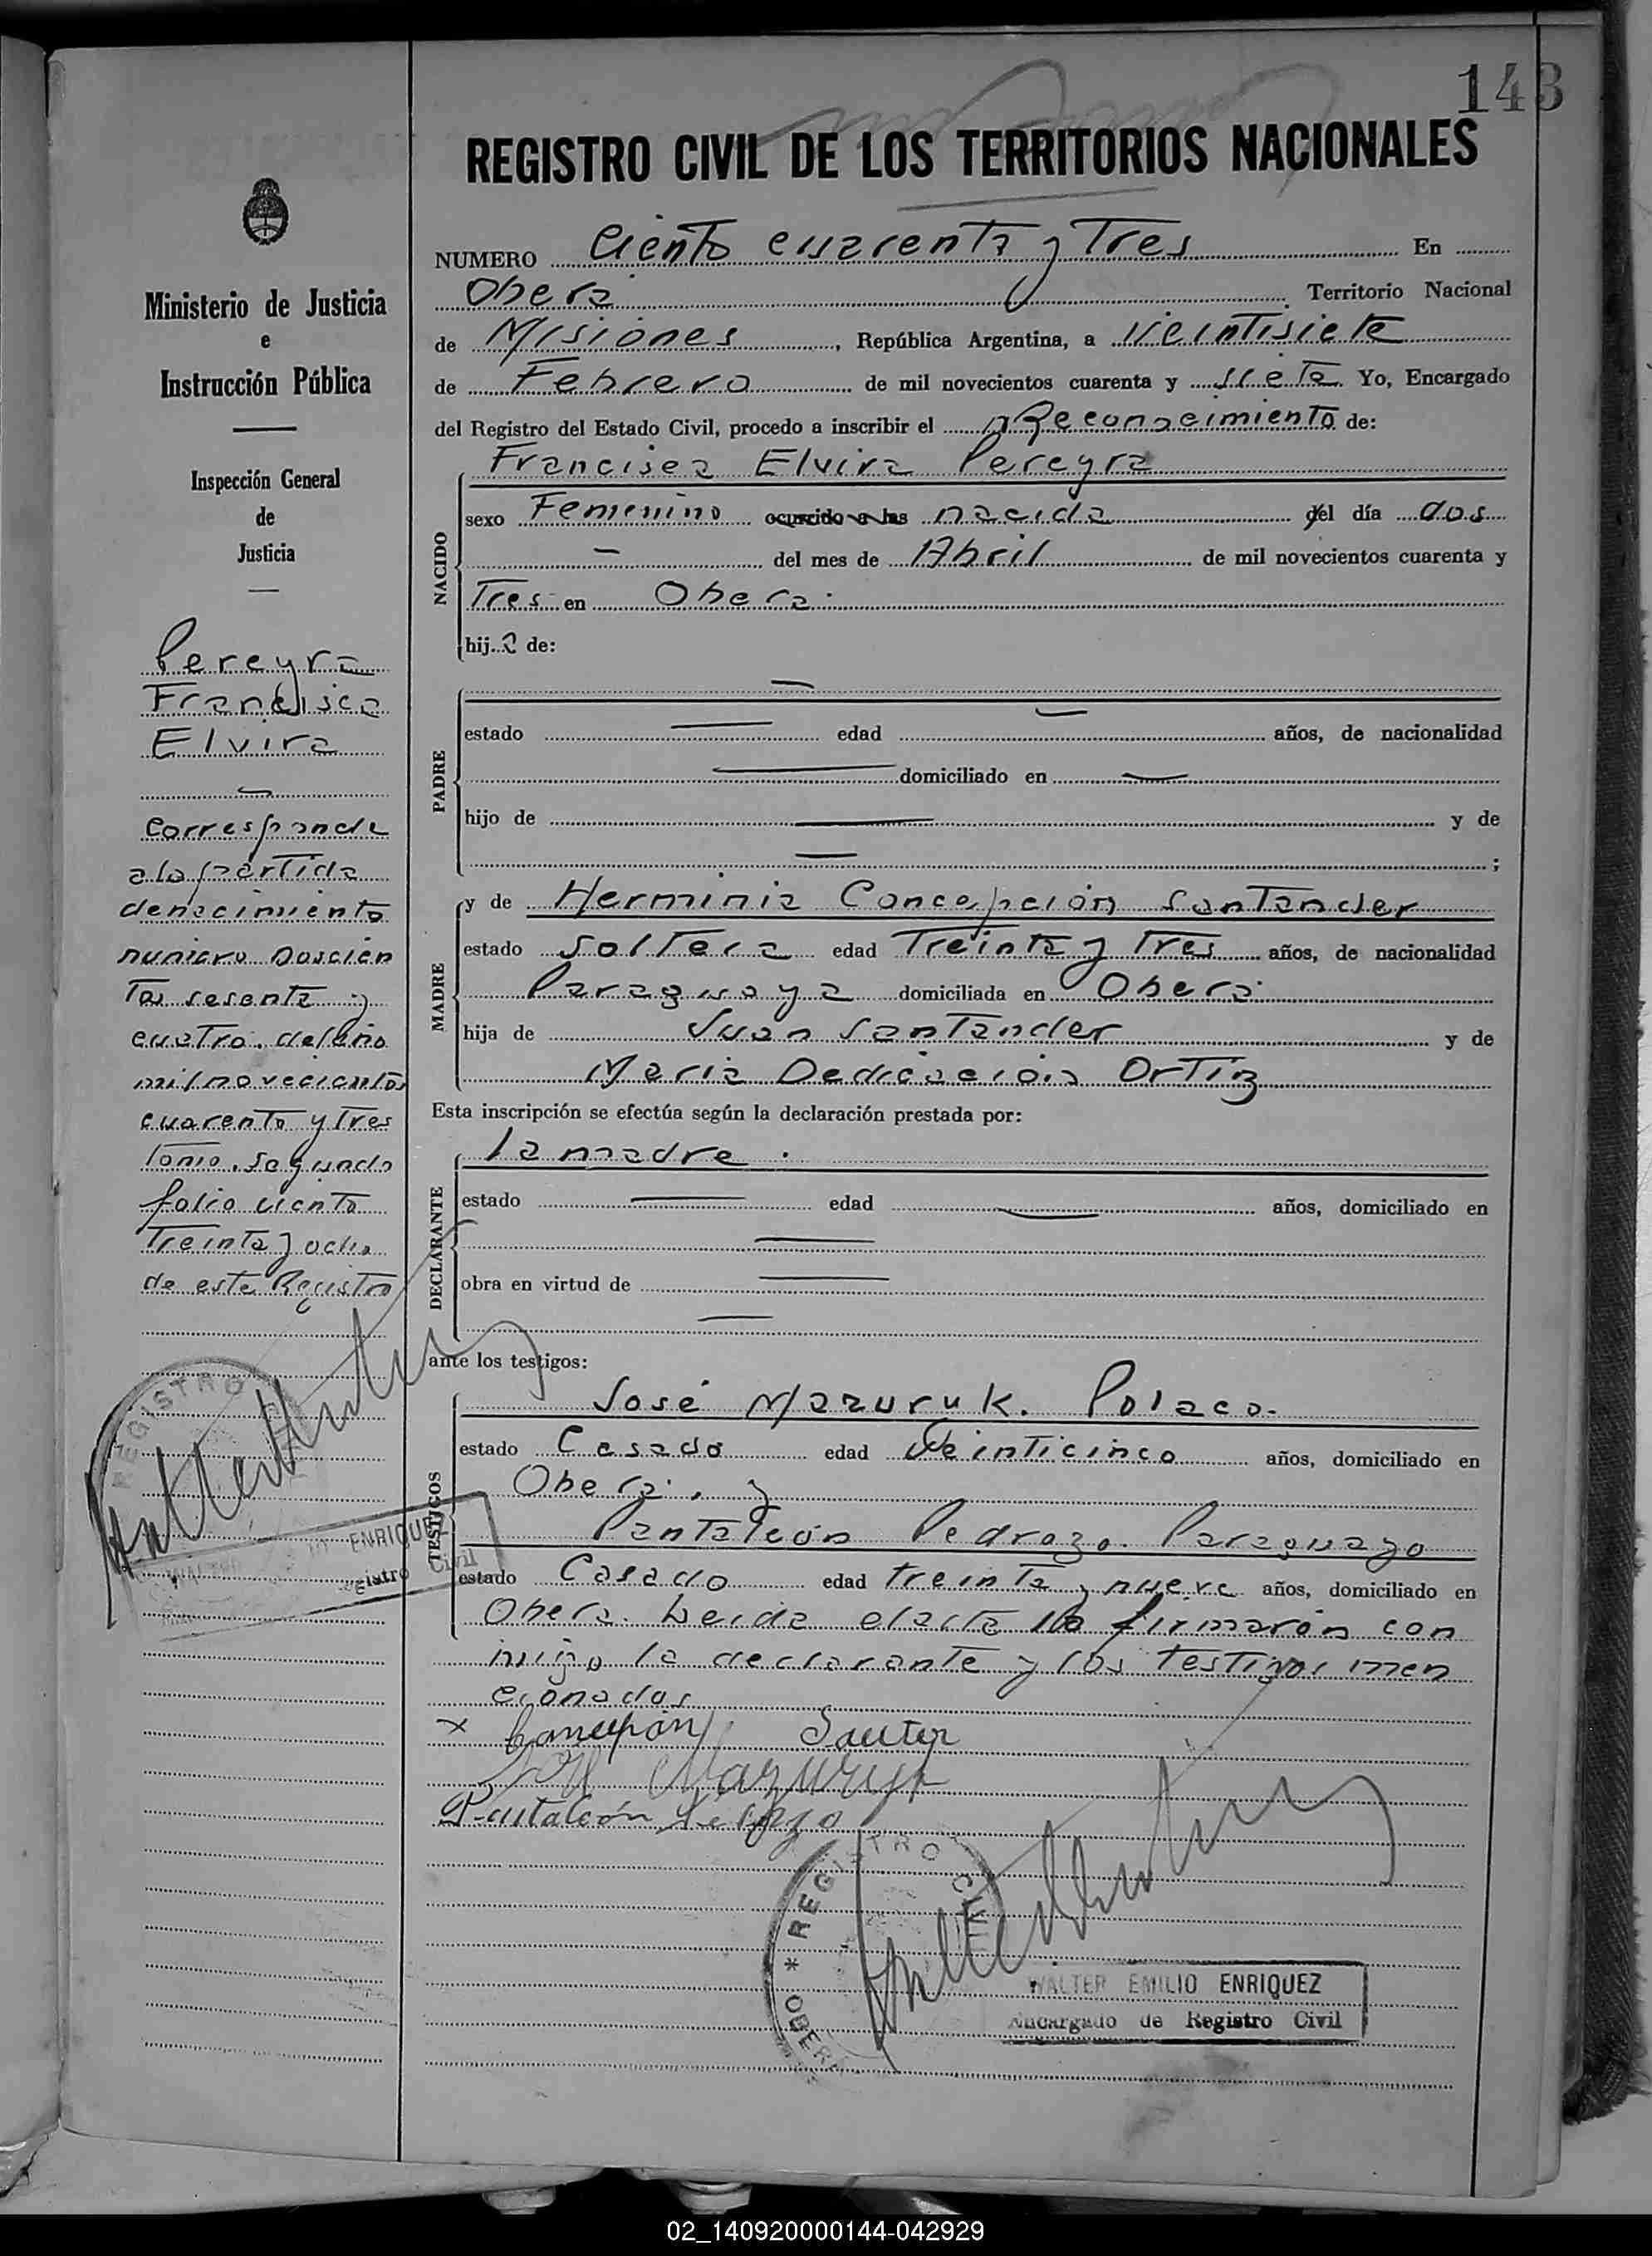 143
REGISTRO CIVIL DE LOS TERRITORIOS NACIONALES
NUMERO Ciento cuarenta y Tres En
Oberá Territorio Nacional
de Misiones, República Argentina, a Veintisiete
de Febrero de mil novecientos cuarenta y siete Yo, Encargado
del Registro del Estado Civil, procedo a inscribir el Reconocimiento de:
Francisca Elvira Pereyra
NACIDO
sexo Femenino ocurrido a las nacida el día dos
— del mes de Abril de mil novecientos cuarenta y
Tres en Oberá.
hija de:
PADRE
—
estado — edad — años, de nacionalidad
— domiciliado en —
hijo de — y de
— ;
MADRE
y de Herminia Concepción Santander
estado soltera edad Treinta y Tres años, de nacionalidad
Paraguaya domiciliada en Oberá
hija de Juan Santander y de
Maria Dedicación Ortiz
Esta inscripción se efectúa según la declaración prestada por:
DECLARANTE
la madre.
estado — edad — años, domiciliado en
—
obra en virtud de —
—
ante los testigos:
TESTIGOS
José Mazuruk. Polaco.
estado Casado edad Veinticinco años, domiciliado en
Oberá. y
Pantaleón Pedrozo. Paraguayo
estado Casado edad treinta y nueve años, domiciliado en
Oberá. Leida el acta la firmarón con
migo la declarante y los testigos men
cionados
x Concepción
José Mazuruk
Pantaleón Pedrozo
REGISTRO CIVIL
* OBERA
WALTER EMILIO ENRIQUEZ
Encargado de Registro Civil
Ministerio de Justicia
e
Instrucción Pública
Inspección General
de
Justicia
Pereyra
Francisca
Elvira
—
Corresponde
a la partida
de nacimiento
numero Doscien
Tos sesenta y
cuatro. del año
mil novecientos
cuarenta y Tres
Tomo. Segundo
folio ciento
Treinta y ocho
de este Registro
REGISTRO
WALTER ENRIQUEZ
Registro Civil
02_140920000144-042929